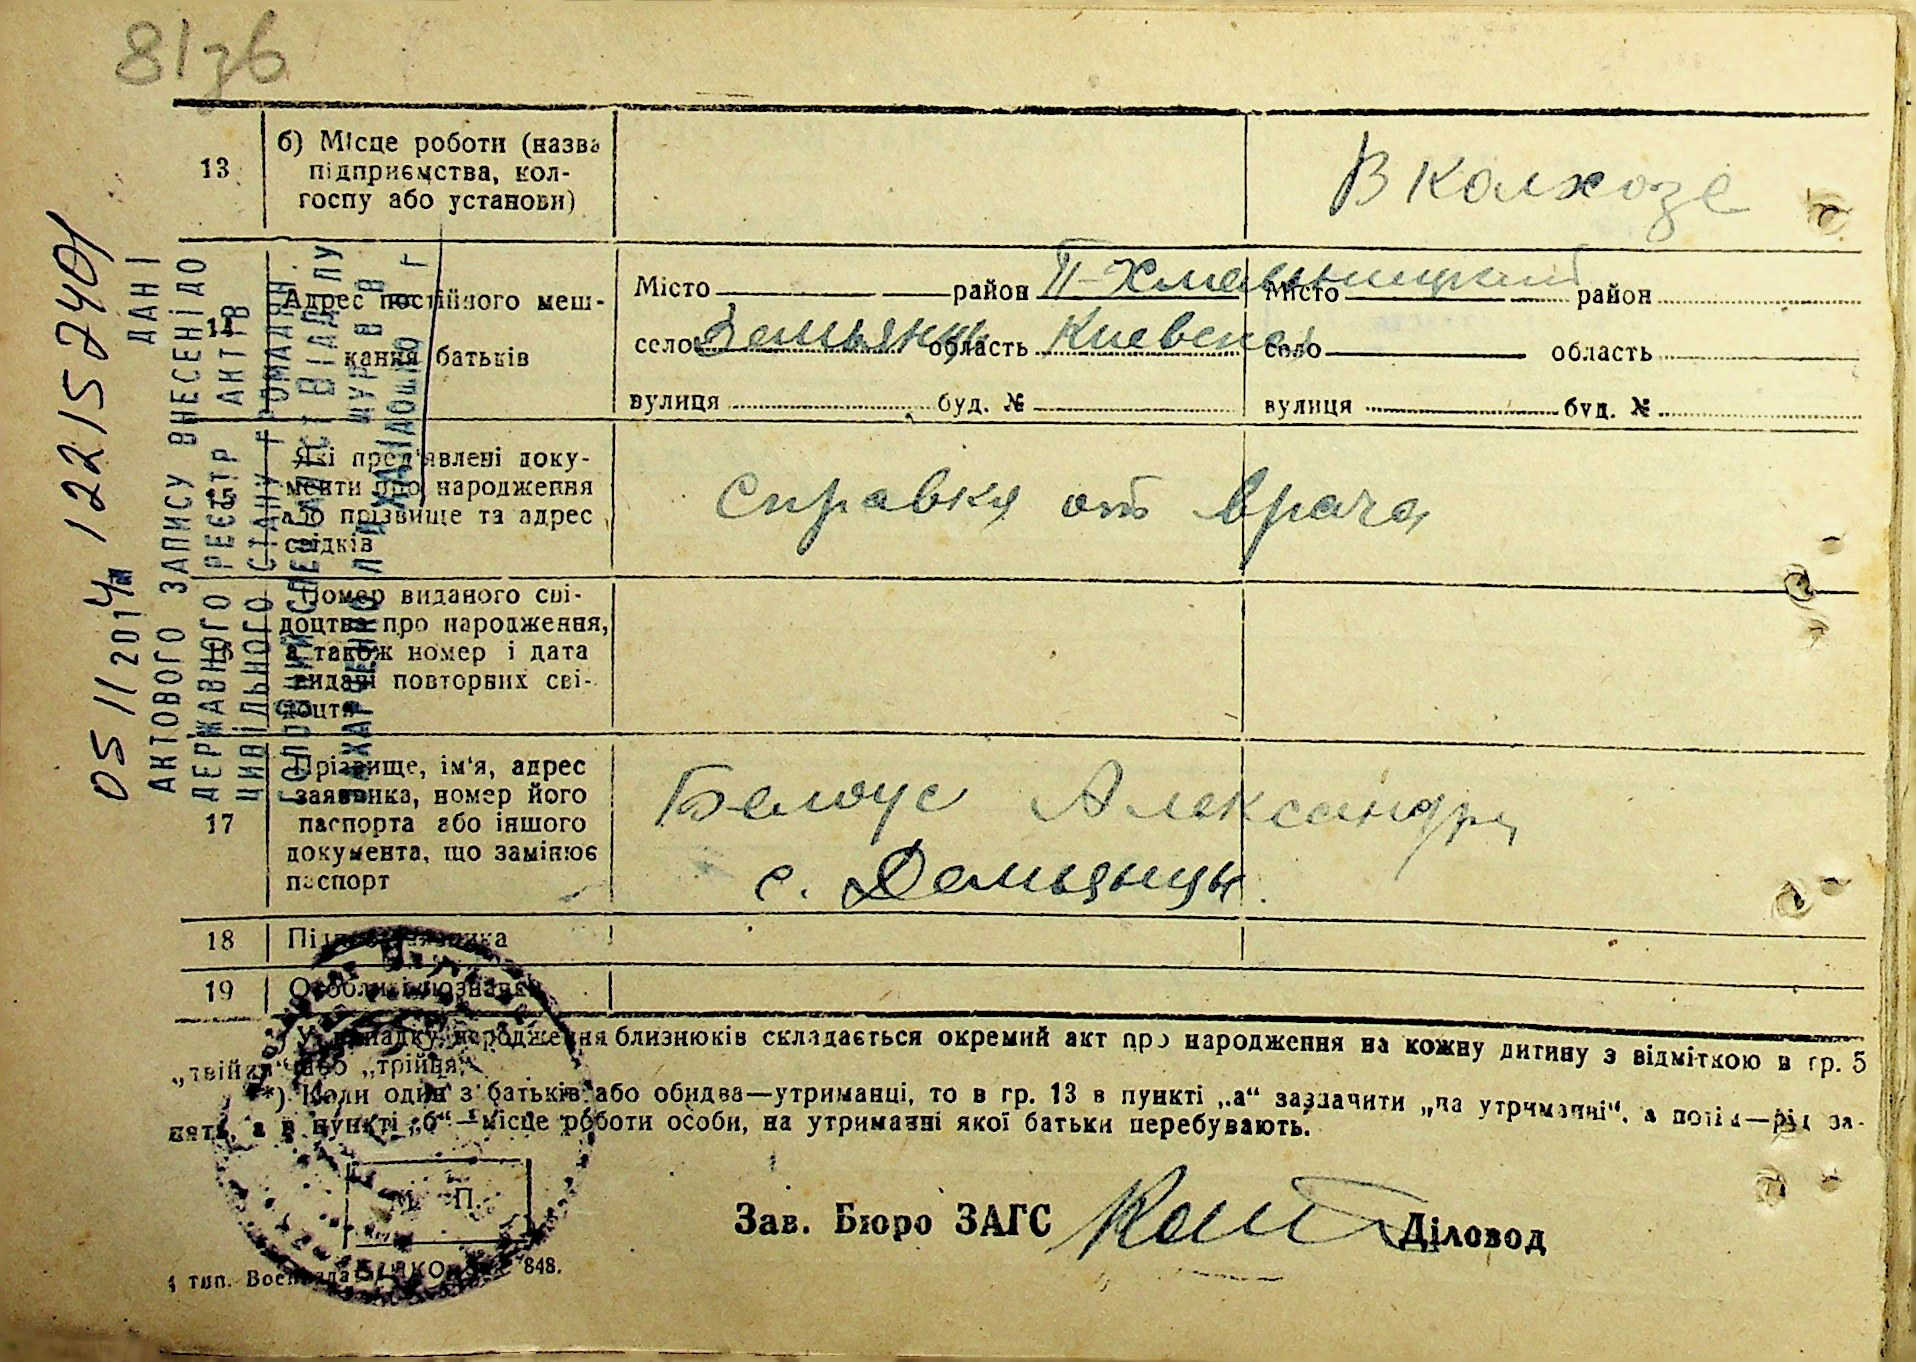 81зв
13
б) Місце роботи (назва
підприємства, кол-
госпу або установи)
В колхозе
14
Адрес постійного меш-
кання батьків
Місто район П-Хмельницкий
село Демьянцы область Киевская
вулиця буд. №
Місто район
село область
вулиця буд. №
15
Які пред'явлені доку-
менти про народження
або прізвище та адрес
свідків
Справка от врача
16
Номер виданого сві-
доцтва про народження,
а також номер і дата
видачі повторних сві-
доцтв
17
Прізвище, ім'я, адрес
заявника, номер його
паспорта або іншого
документа, що замінює
паспорт
Белоус Александр
с. Демьянцы.
18
Підпис заявника
19
Особливі позначки
У випадку народження близнюків складається окремий акт про народження на кожну дитину з відміткою в гр. 5
„двійня“ або „трійня“
*) Коли один з батьків або обидва—утриманці, то в гр. 13 в пункті „а“ зазначити „на утриманні“, а потім—рід за-
няття, а в пункті „б“—місце роботи особи, на утриманні якої батьки перебувають.
М. П.
Зав. Бюро ЗАГС Діловод
4 тип. Воениздата 848.
05 11 2014 122157401
ДАНІ
АКТОВОГО ЗАПИСУ ВНЕСЕНІ ДО
ДЕРЖАВНОГО РЕЄСТР АКТІВ
ЦИВІЛЬНОГО СТАНУ ГРОМАДЯН.
ГОЛОВНИЙ СПЕЦІАЛІСТ ВІДДІЛУ
ЗАХАРЧЕНКО Л.І.